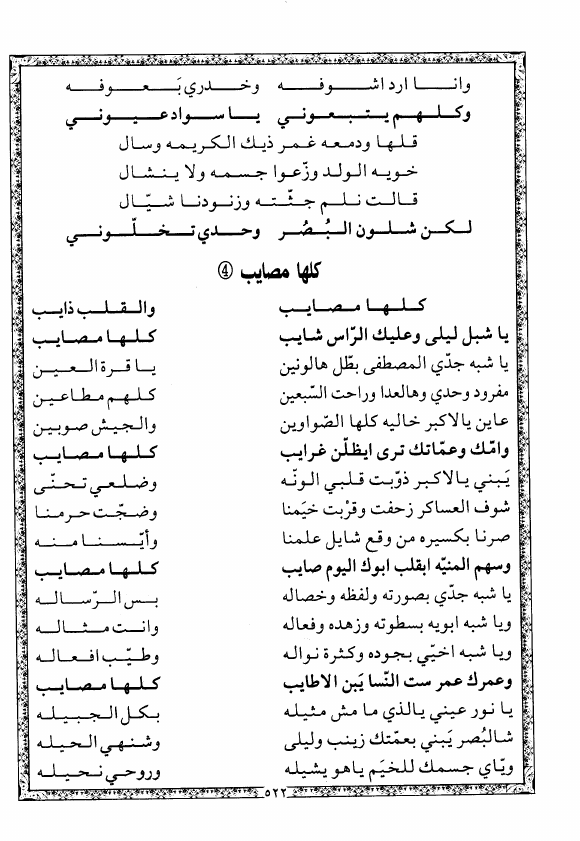 وانـا ارد اشـوفـه وخـدري بَـعـوفـه
وكـلـهـم يـتـبـعـوني يـا سـواد عـيـوني
قـلـهـا ودمـعـه غـمـر ذيـك الـكـريـمـه وسـال
خـويـه الـولـد وزّعـوا جـسـمـه ولا يـنـشـال
قـالـت نـلـم جـثّـتـه وزنـودنـا شـيّـال
لـكـن شـلـون الـبُـصُـر وحـدي تـخـلّـوني
كلها مصايب ④
كـلـهـا مـصـايـب والـقـلـب ذايـب
يا شبل ليلى وعليك الرّاس شايب كـلـهـا مـصـايـب
يا شبه جدّي المصطفى بطّل هالونين يـا قـرة الـعـيـن
مفرود وحدي وهالعدا وراحت السّبعين كـلـهـم مـطـاعـيـن
عاين يالاكبر خاليه كلها الصّواوين والـجـيـش صـوبـيـن
وامّك وعمّاتك ترى ايظلّن غرايب كـلـهـا مـصـايـب
يَبني يالاكبر ذوّبت قلبي الونّه وضـلـعـي تـحـنّـى
شوف العساكر زحفت وقرْبت خيَمنا وضـجّـت حـرمـنـا
صرنا بكسيره من وقع شايل علمنا وأيّـسـنـا مـنـه
وسهم المنيّه ابقلب ابوك اليوم صايب كـلـهـا مـصـايـب
يا شبه جدّي بصورته ولفظه وخصاله بـس الـرّسـالـه
ويا شبه ابويه بسطوته وزهده وفعاله وانـت مـثـالـه
ويا شبه اخيّي بجوده وكثرة نواله وطيّـب افـعـالـه
وعمرك عمر ست النّسا يَبن الاطايب كـلـهـا مـصـايـب
يا نور عيني يالذي ما مش مثيله بـكـل الـجـبـيـلـه
شالبُصر يَبني بعمّتك زينب وليلى وشـنـهـي الـحـيـلـه
ويّاي جسمك للخيَم ياهو يشيله وروحـي نـحـيـلـه
٥٢٢